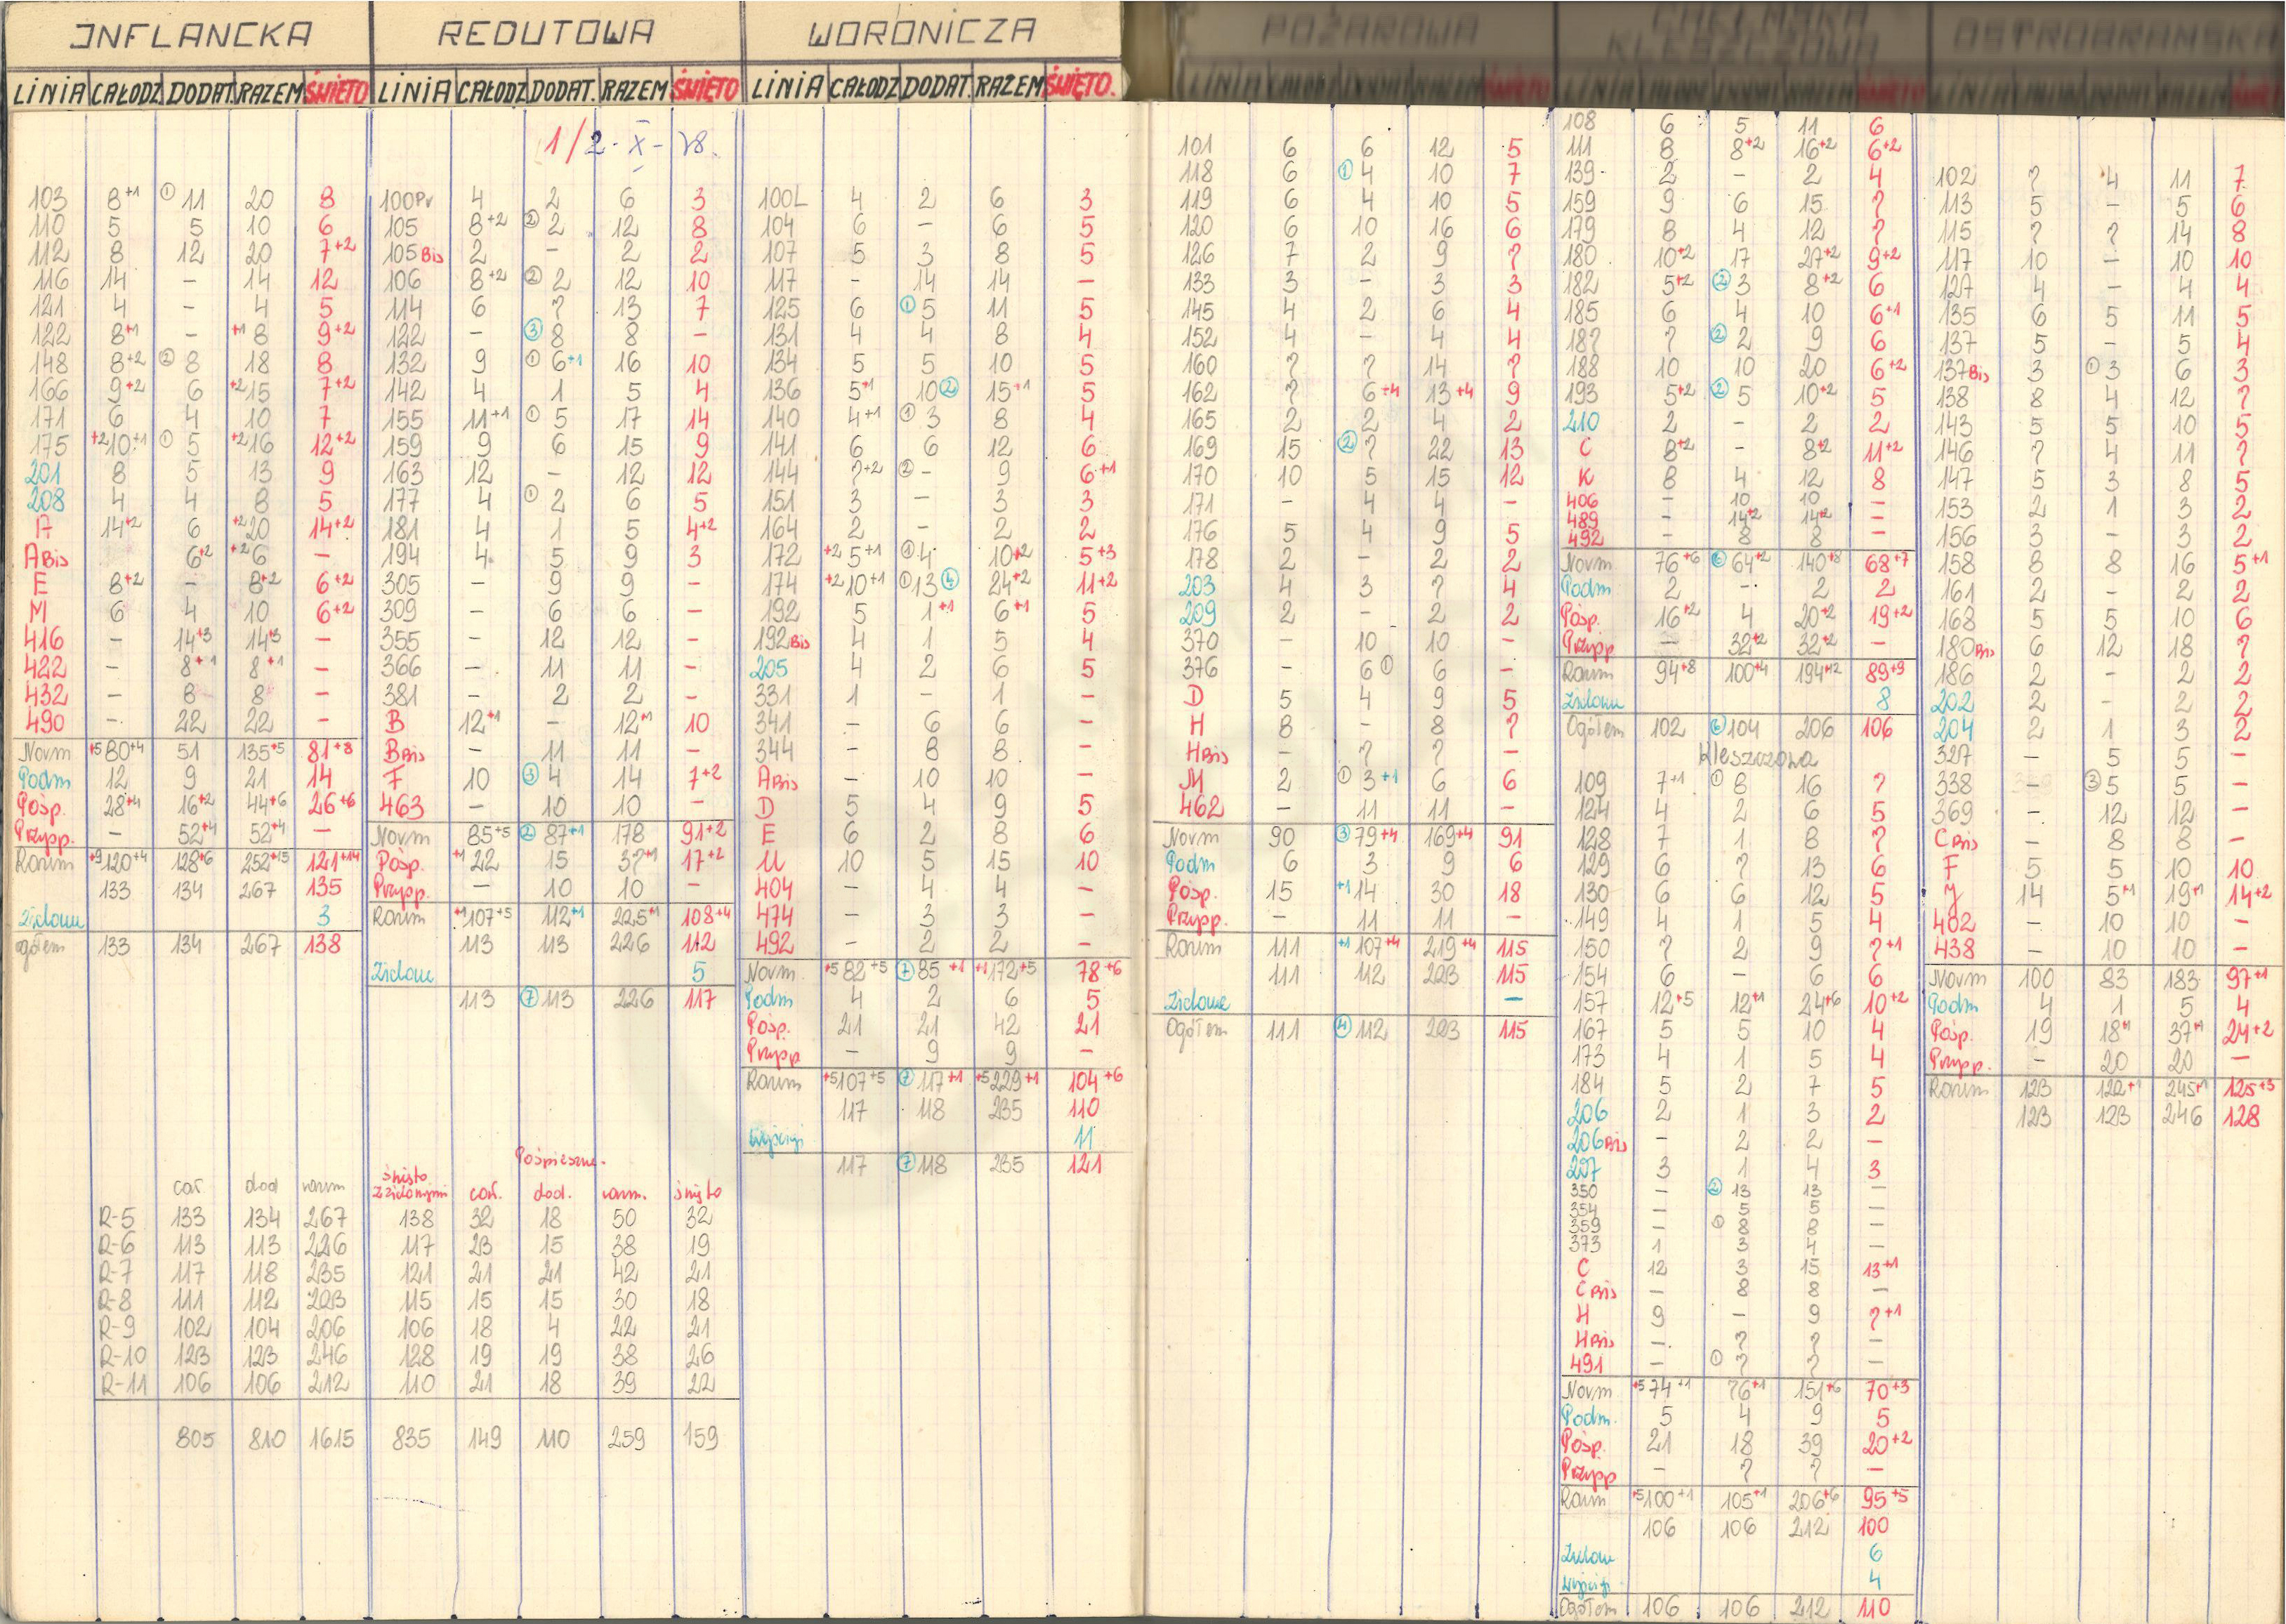 INFLANCKA
LINIA CAŁODZ DODAT RAZEM ŚWIĘTO
103 8+1 ① 11 20 8
110 5 5 10 6
112 8 12 20 7+2
116 14 - 14 12
121 4 - 4 5
122 8+1 - +1 8 9+2
148 8+2 ② 8 18 8
166 9+2 6 +2 15 7+2
171 6 4 10 7
175 +2 10+1 ① 5 +2 16 12+2
201 8 5 13 9
208 4 4 8 5
A 14+2 6 +2 20 14+2
A Bis 6+2 +2 6 -
E 8+2 - 8+2 6+2
M 6 4 10 6+2
416 - 14+3 14+3 -
422 - 8+1 8+1 -
432 - 8 8 -
490 - 22 22 -
Norm +5 80+4 51 135+5 81+8
Podm 12 9 21 14
Pośp. 28+4 16+2 44+6 26+6
Przysp. - 52+4 52+4 -
Razem +9 120+4 128+6 252+15 121+14
133 134 267 135
Zielone 3
ogółem 133 134 267 138
REDUTOWA
LINIA CAŁODZ DODAT. RAZEM ŚWIĘTO
1/2-X-78.
100Pr 4 2 6 3
105 8+2 ② 2 12 8
105 Bis 2 - 2 2
106 8+2 ② 2 12 10
114 6 7 13 7
122 - ③ 8 8 -
132 9 ① 6+1 16 10
142 4 1 5 4
155 11+1 ① 5 17 14
159 9 6 15 9
163 12 - 12 12
177 4 ① 2 6 5
181 4 1 5 4+2
194 4 5 9 3
305 - 9 9 -
309 - 6 6 -
355 - 12 12 -
366 - 11 11 -
381 2 2 -
B 12+1 - 12+1 10
B Bis - 11 11 -
F 10 ③ 4 14 7+2
463 - 10 10 -
Norm 85+5 ② 87+1 178 91+2
Pośp. +1 22 15 37+1 17+2
Przysp. - 10 10 -
Razem +1 107+5 112+1 225+1 108+4
113 113 226 112
Zielone 5
113 ⑦ 113 226 117
WORONICZA
LINIA CAŁODZ DODAT. RAZEM ŚWIĘTO.
100L 4 2 6 3
104 6 - 6 5
107 5 3 8 5
117 - 14 14 -
125 6 ① 5 11 5
131 4 4 8 4
134 5 5 10 5
136 5+1 10 ② 15+1 5
140 4+1 ① 3 8 4
141 6 6 12 6
144 7+2 ② - 9 6+1
151 3 - 3 3
164 2 - 2 2
172 +2 5+1 ① 4 10+2 5+3
174 +2 10+1 ① 13 ④ 24+2 11+2
192 5 1+1 6+1 5
192 Bis 4 1 5 4
205 4 2 6 5
331 1 - 1 -
341 - 6 6 -
344 - 8 8 -
A Bis - 10 10 -
D 5 4 9 5
E 6 2 8 6
U 10 5 15 10
404 - 4 4 -
474 - 3 3 -
492 - 2 2 -
Norm. +5 82+5 ⑦ 85+1 +1 172+5 78+6
Podm 4 2 6 5
Pośp. 21 21 42 21
Przysp - 9 9 -
Razem +5 107+5 ⑦ 117+1 +5 229+1 104+6
117 118 235 110
11
117 ⑦ 118 235 121
cał dod razem święto z zielonymi Pośpieszne. cał. dod. razem. święto
R-5 133 134 267 138 32 18 50 32
R-6 113 113 226 117 23 15 38 19
R-7 117 118 235 121 21 21 42 21
R-8 111 112 223 115 15 15 30 18
R-9 102 104 206 106 18 4 22 21
R-10 123 123 246 128 19 19 38 26
R-11 106 106 212 110 21 18 39 22
805 810 1615 835 149 110 259 159
POŻAROWA
LINIA
101 6 6 12 5
118 6 ① 4 10 7
119 6 4 10 5
120 6 10 16 6
126 7 2 9 7
133 3 - 3 3
145 4 2 6 4
152 4 - 4 4
160 7 7 14 7
162 7 6+4 13+4 9
165 2 2 4 2
169 15 ② 7 22 13
170 10 5 15 12
171 - 4 4 -
176 5 4 9 5
178 2 - 2 2
203 4 3 7 4
209 2 - 2 2
370 - 10 10 -
376 - 6 ① 6 -
D 5 4 9 5
H 8 - 8 7
H Bis - 7 7 -
M 2 ① 3+1 6 6
462 - 11 11 -
Norm 90 ③ 79+4 169+4 91
Podm 6 3 9 6
Pośp. 15 +1 14 30 18
Przysp. - 11 11 -
Razem 111 +1 107+4 219+4 115
111 112 223 115
Zielone -
Ogółem 111 ④ 112 223 115
KLESZCZOWA
108 6 5 11 6
111 8 8+2 16+2 6+2
139 2 - 2 4
159 9 6 15 7
179 8 4 12 7
180 10+2 17 27+2 9+2
182 5+2 ② 3 8+2 6
185 6 4 10 6+1
187 7 ② 2 9 6
188 10 10 20 6+2
193 5+2 ② 5 10+2 5
210 2 - 2 2
C 8+2 - 8+2 11+2
K 8 4 12 8
406 - 10 10 -
489 - 14+2 14+2 -
492 - 8 8 -
Norm 76+6 ⑥ 64+2 140+8 68+7
Podm 2 - 2 2
Pośp. 16+2 4 20+2 19+2
Przysp - 32+2 32+2 -
Razem 94+8 100+4 194+12 89+9
Zielone 8
Ogółem 102 ⑥ 104 206 106
Kleszczowa
109 7+1 ① 8 16 7
124 4 2 6 5
128 7 1 8 7
129 6 7 13 6
130 6 6 12 5
149 4 1 5 4
150 7 2 9 7+1
154 6 - 6 6
157 12+5 12+1 24+6 10+2
167 5 5 10 4
173 4 1 5 4
184 5 2 7 5
206 2 1 3 2
206 Bis - 2 2 -
207 3 1 4 3
350 - ② 13 13 -
354 - 5 5 -
359 - ① 8 8 -
373 1 3 4 -
C 12 3 15 13+1
C Bis - 8 8 -
H 9 - 9 7+1
H Bis - 7 7 -
491 - ① 7 7 -
Norm +5 74+1 76+1 151+6 70+3
Podm. 5 4 9 5
Pośp. 21 18 39 20+2
Przysp - 7 7 -
Razem +5 100+1 105+1 206+6 95+5
106 106 212 100
Zielone 6
4
Ogółem 106 106 212 110
OSTROBRAMSKA
102 7 4 11 7
113 5 - 5 6
115 7 7 14 8
117 10 - 10 10
127 4 - 4 4
135 6 5 11 5
137 5 - 5 4
137 Bis 3 ① 3 6 3
138 8 4 12 7
143 5 5 10 5
146 7 4 11 7
147 5 3 8 5
153 2 1 3 2
156 3 - 3 2
158 8 8 16 5+1
161 2 - 2 2
168 5 5 10 6
180 Bis 6 12 18 7
186 2 - 2 2
202 2 - 2 2
204 2 1 3 2
327 - 5 5 -
338 - ③ 5 5 -
369 - 12 12 -
C Bis - 8 8 -
F 5 5 10 10
14 5+1 19+1 14+2
402 - 10 10 -
438 - 10 10 -
Norm 100 83 183 97+1
Podm 4 1 5 4
Pośp. 19 18+1 37+1 24+2
Przysp. - 20 20 -
Razem 123 122+1 245+1 125+3
123 123 246 128